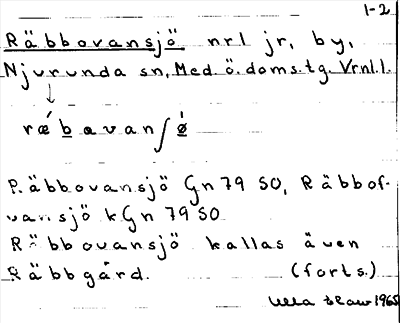 1-2
Räbbovansjö nrl jr, by,
Njurunda sn, Med ö. doms.tg. Vrnl.l.
rǽbavanʃǿ
Räbbovansjö Gn 79 SO, Räbbof-
vansjö kGn 79 SO
Räbbovansjö kallas även
Räbbgård. (forts.)
Ulla 1965